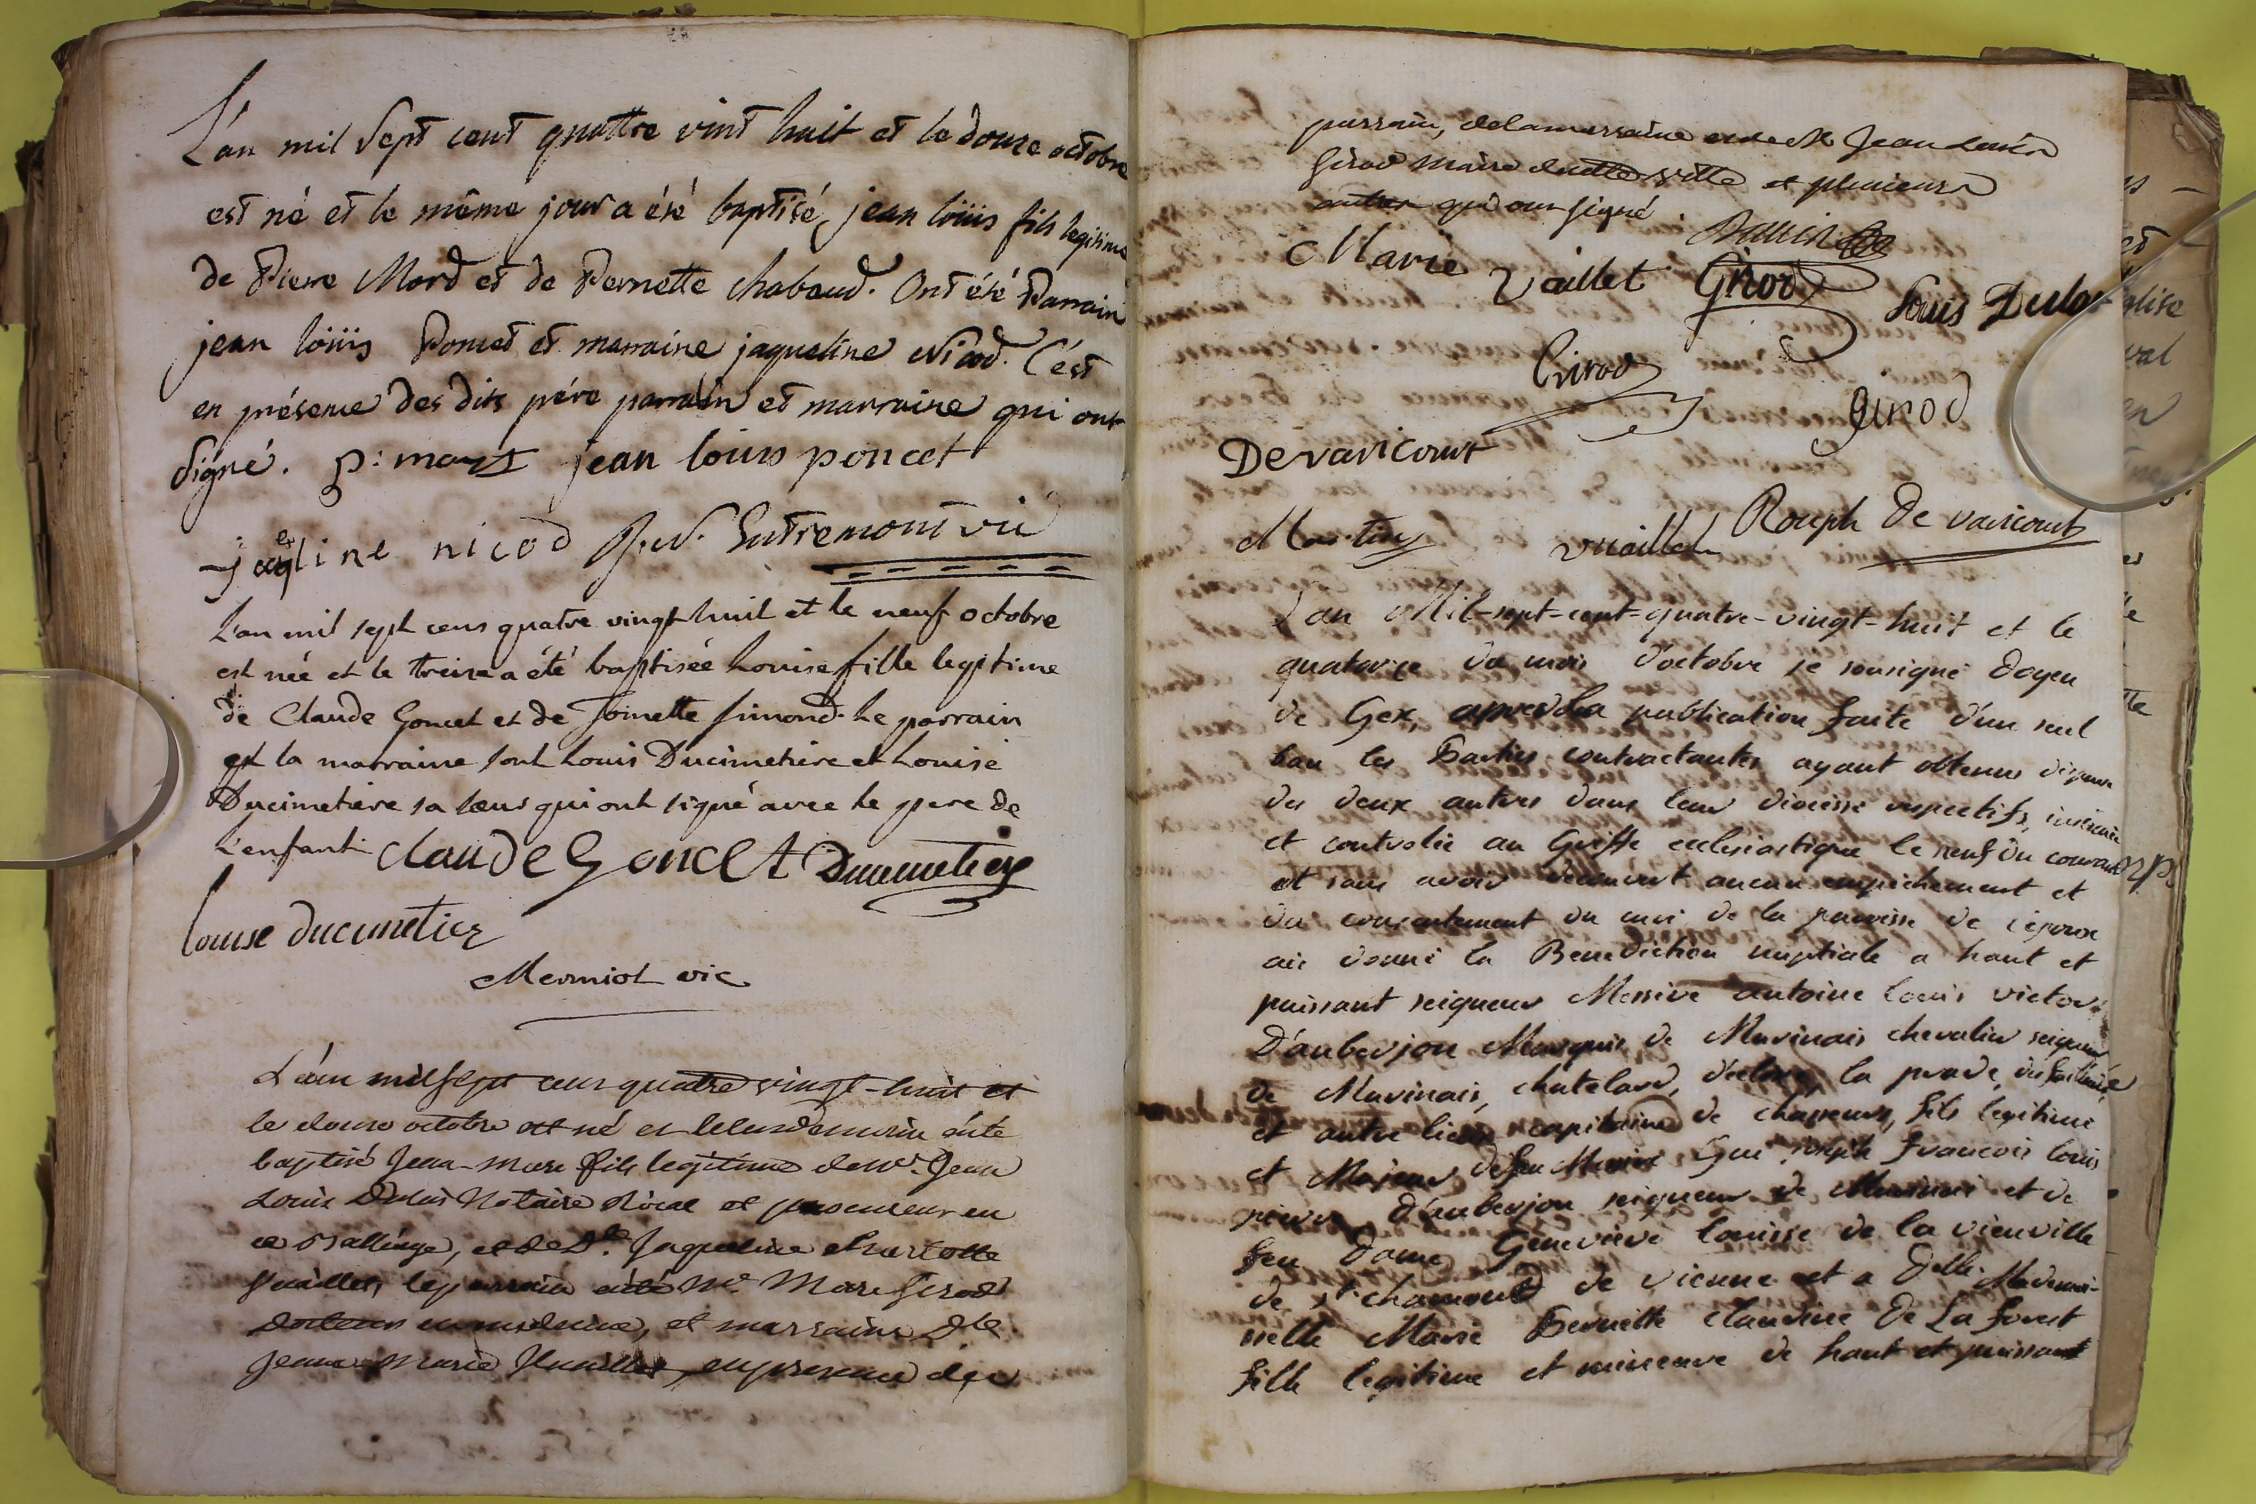 L'an mil Sept cent quattre vint huit et le douze octobre
est né et le même jour a été baptisé, jean loüis fils legitime
de Pierre Mord et de Pernette chabaud. Ont été Parrain
jean loüis Poncet et marraine jaqueline Nicod. C'ést
en présence des dits pére parrain et marraine qui ont
signé. p: jean louis poncet
nicod Entremont vic
L'an mil sept cens quatre vingt huit et le neuf octobre
est née et le treize a été baptisée Louise fille legitime
de Claude Goncet et de Joinette Simond. Le parrain
et la marraine sont Louis Ducimetiere et Louise
Ducimetiere sa sœur qui ont signé avec le pere de
L'enfant claude Goncet Ducimetiere
Louise ducimetier
Mermiot vic
L'an mil sept cens quatre vingt-huit et
le douze octobre est né et le lendemain a été
baptisé Jean-Marc fils legitime de Mr. Jean
Louis Notaire Roial et procureur en
ce Balliage, et de Dlle. Jaqueline charlotte
Vuaillet, le parrain a été Mr. Marc Girod
docteur en medecine, et marraine Dlle
Jeanne Marie Vuaillet, en presence du
parrain, de la marraine et de Mr Jean Louis
Girod Maire de cette ville et plusieurs
autres qui ont signé.
Marie Vuillet Girod Louis
Girod Girod
De varicourt
Martin vuaillet Rouph de varicourt
L'an Mil-sept-cent-quatre-vingt-huit et le
quatorze du mois d'octobre je sousigné doyen
de Gex, après la publication faite d'un seul
ban les Parties contractantes ayant obtenus dispense
des deux autres dans leur diocèse respectifs, insinuée
et controlée au Greffe ecclesiastique le neuf du courant
et sans avoir decouvert aucun empechement et
du consentement du curé de la paroisse de l'époux
ais donné la Benediction nuptiale a haut et
puissant seigneur Messire antoine louis victor
D'auberjon Marquis de Murinais chevalier seigneur
de Murinais, chatelard, la prade,
et autre lieux capitaine de chasseurs, fils legitime
et Majeur de feu Messire Gui joseph francois louis
d'auberjon seigneur de Murinais et de
feu dame Genevieve louise de la vieuville
de st chamond de vienne et a delle. Mademoi-
selle Marie Pernette Claudine De La forest
fille legitime et mineure de haut et puissant